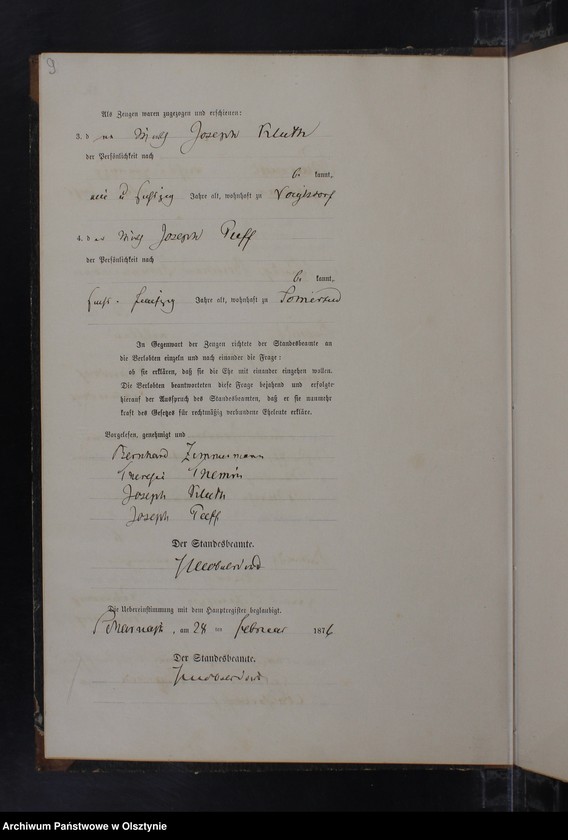 9
Als Zeugen waren zugezogen und erschienen:
3. d Joseph Kluth
der Persönlichkeit nach
be kannt,
Jahre alt, wohnhaft zu Voigtsdorf
4. d Joseph
der Persönlichkeit nach
be kannt,
Jahre alt, wohnhaft zu
In Gegenwart der Zeugen richtete der Standesbeamte an
die Verlobten einzeln und nach einander die Frage:
ob sie erklären, daß sie die Ehe mit einander eingehen wollen.
Die Verlobten beantworteten diese Frage bejahend und erfolgte
hierauf der Ausspruch des Standesbeamten, daß er sie nunmehr
kraft des Gesetzes für rechtmäßig verbundene Eheleute erkläre.
Vorgelesen, genehmigt und
Bernhard Zimmermann
Joseph Kluth
Joseph
Der Standesbeamte.
Die Uebereinstimmung mit dem Hauptregister beglaubigt.
am 28 ten Februar 1876
Der Standesbeamte.
Archiwum Państwowe w Olsztynie